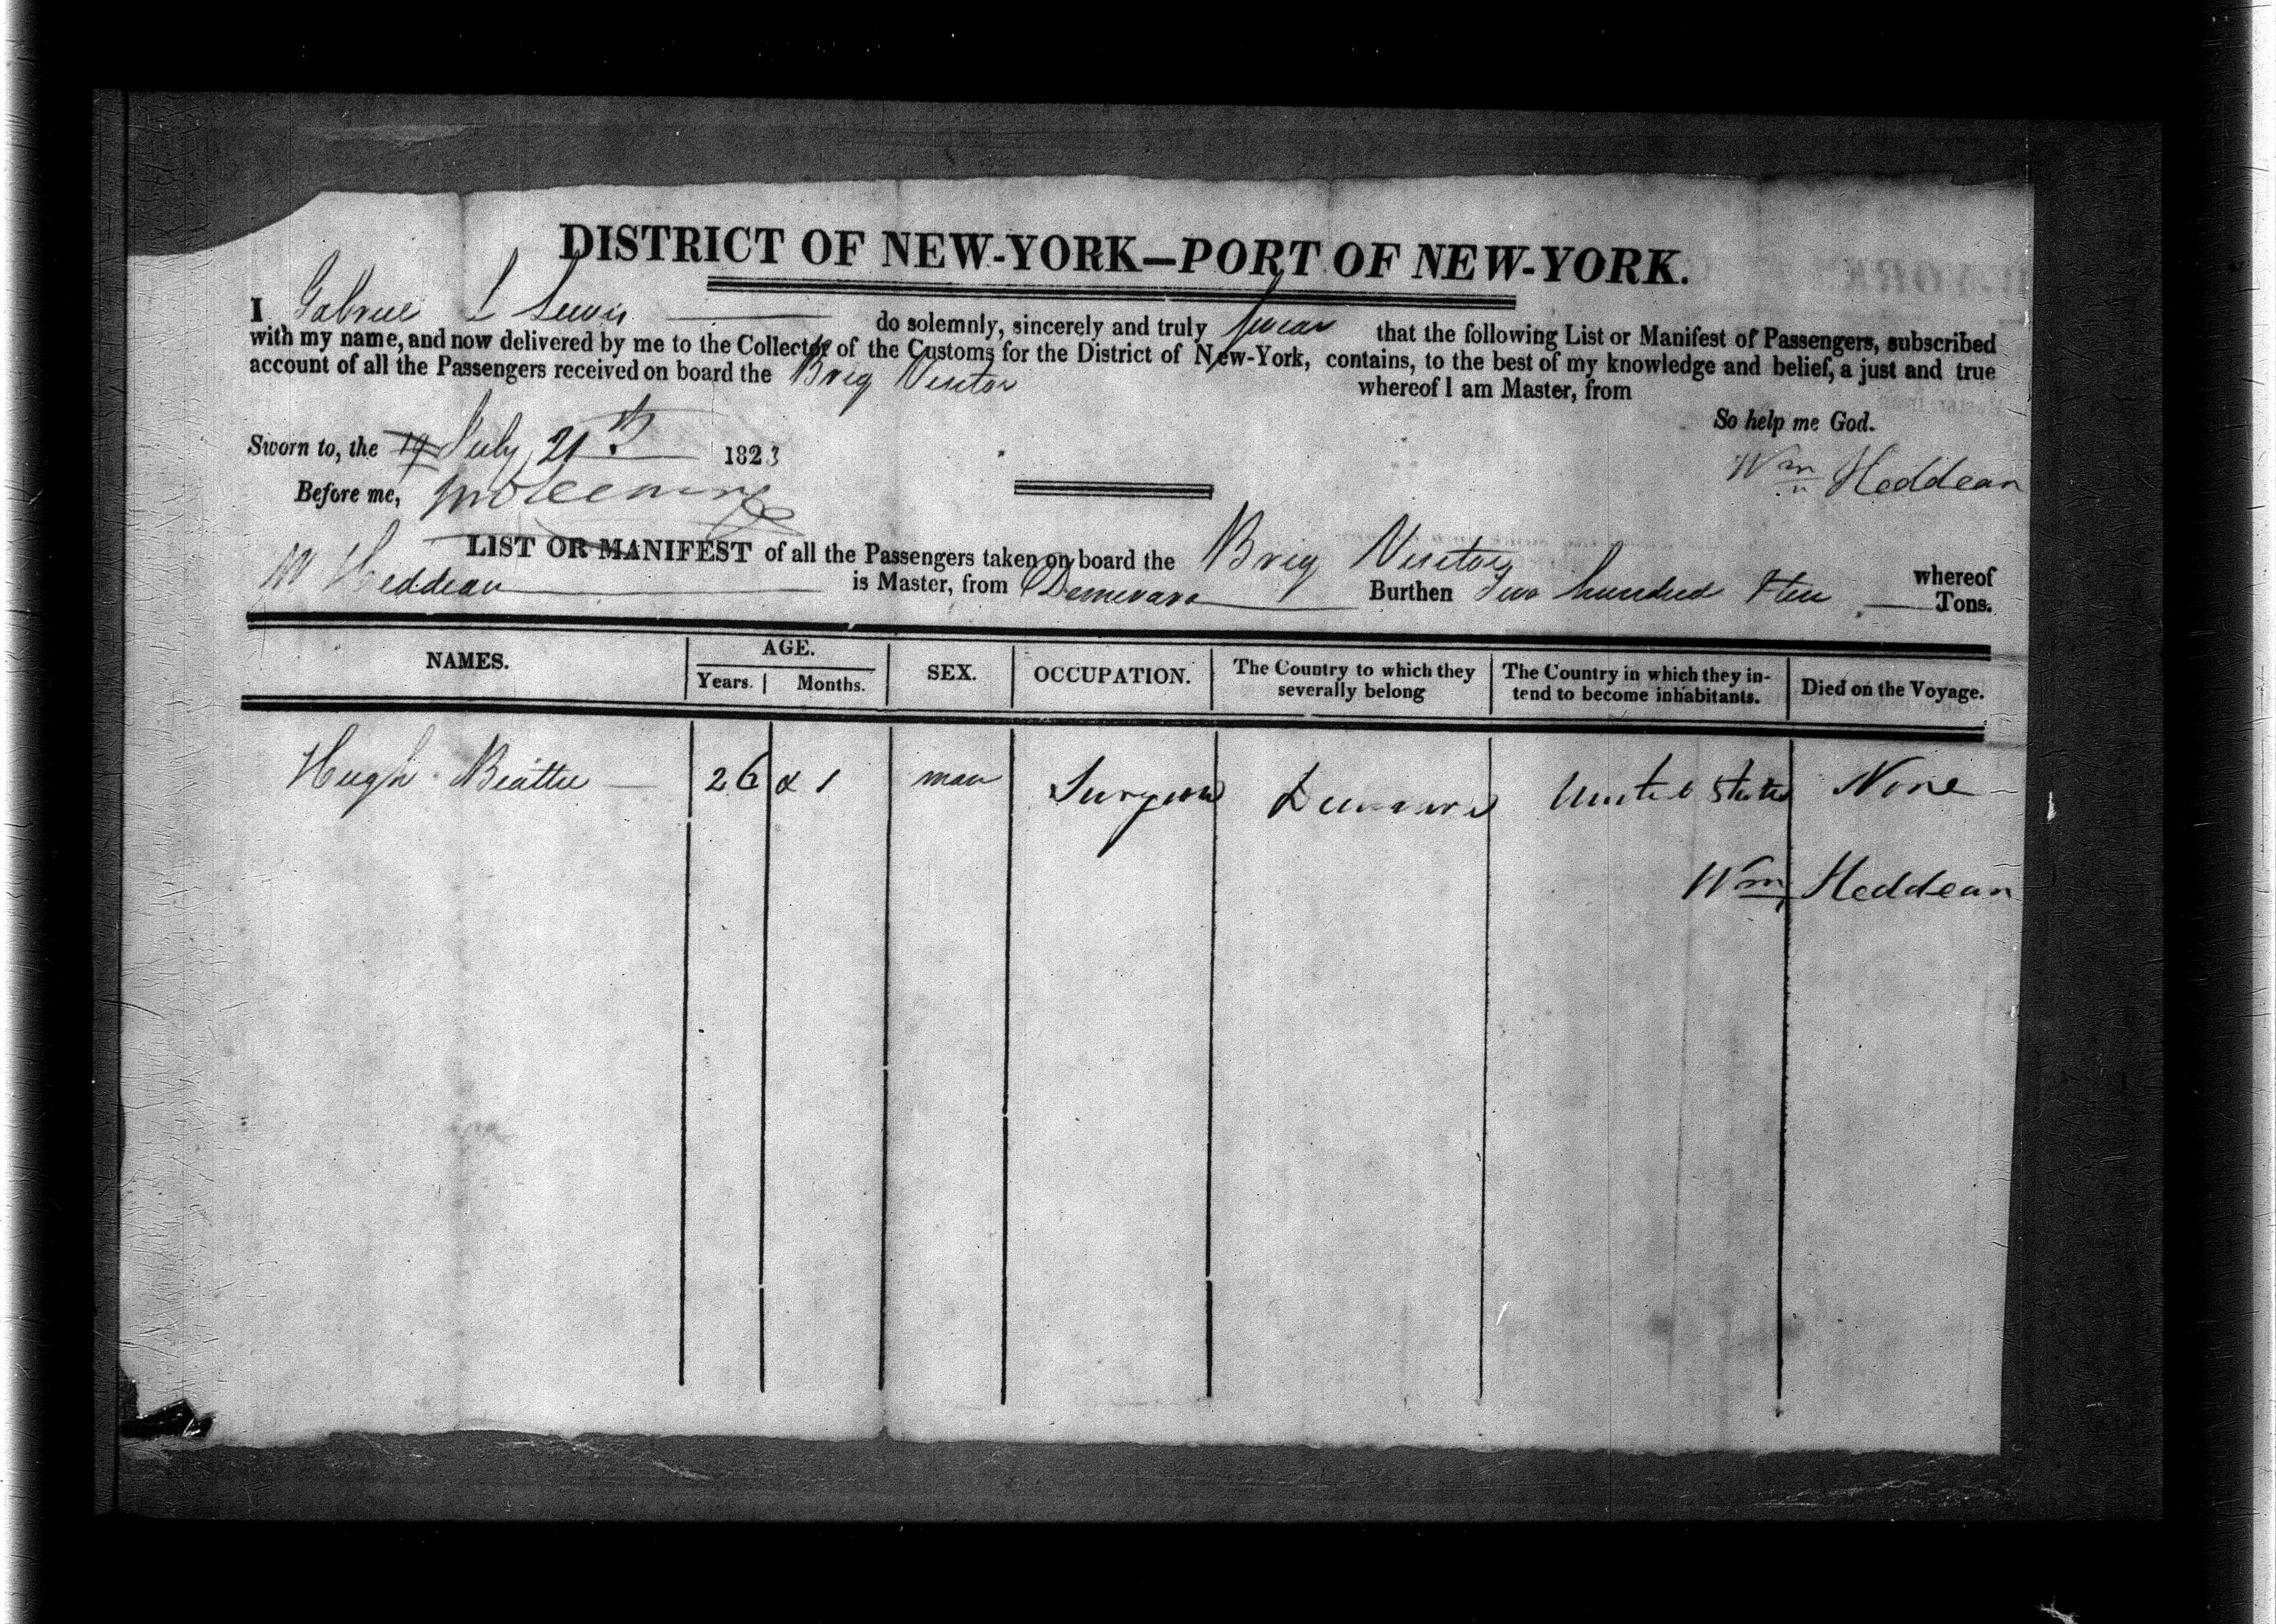 DISTRICT OF NEW-YORK—PORT OF NEW-YORK.
I Gabriel L Lewis do solemnly, sincerely and truly swear that the following List or Manifest of Passengers, subscribed
with my name, and now delivered by me to the Collector of the Customs for the District of New-York, contains, to the best of my knowledge and belief, a just and true
account of all the Passengers received on board the Brig Visitor whereof I am Master, from
So help me God.
Sworn to, the 19 July 21st 1823
Wm Heddean
Before me,
LIST OR MANIFEST of all the Passengers taken on board the Brig Visitor whereof
W Heddean is Master, from Demerara Burthen Two hundred Ten Tons.
NAMES. AGE. SEX. OCCUPATION. The Country to which they severally belong The Country in which they in-tend to become inhabitants. Died on the Voyage.
Years. Months.
Hugh Beattie 26 & 1 man Surgeon Demerara United States None
Wm Heddean